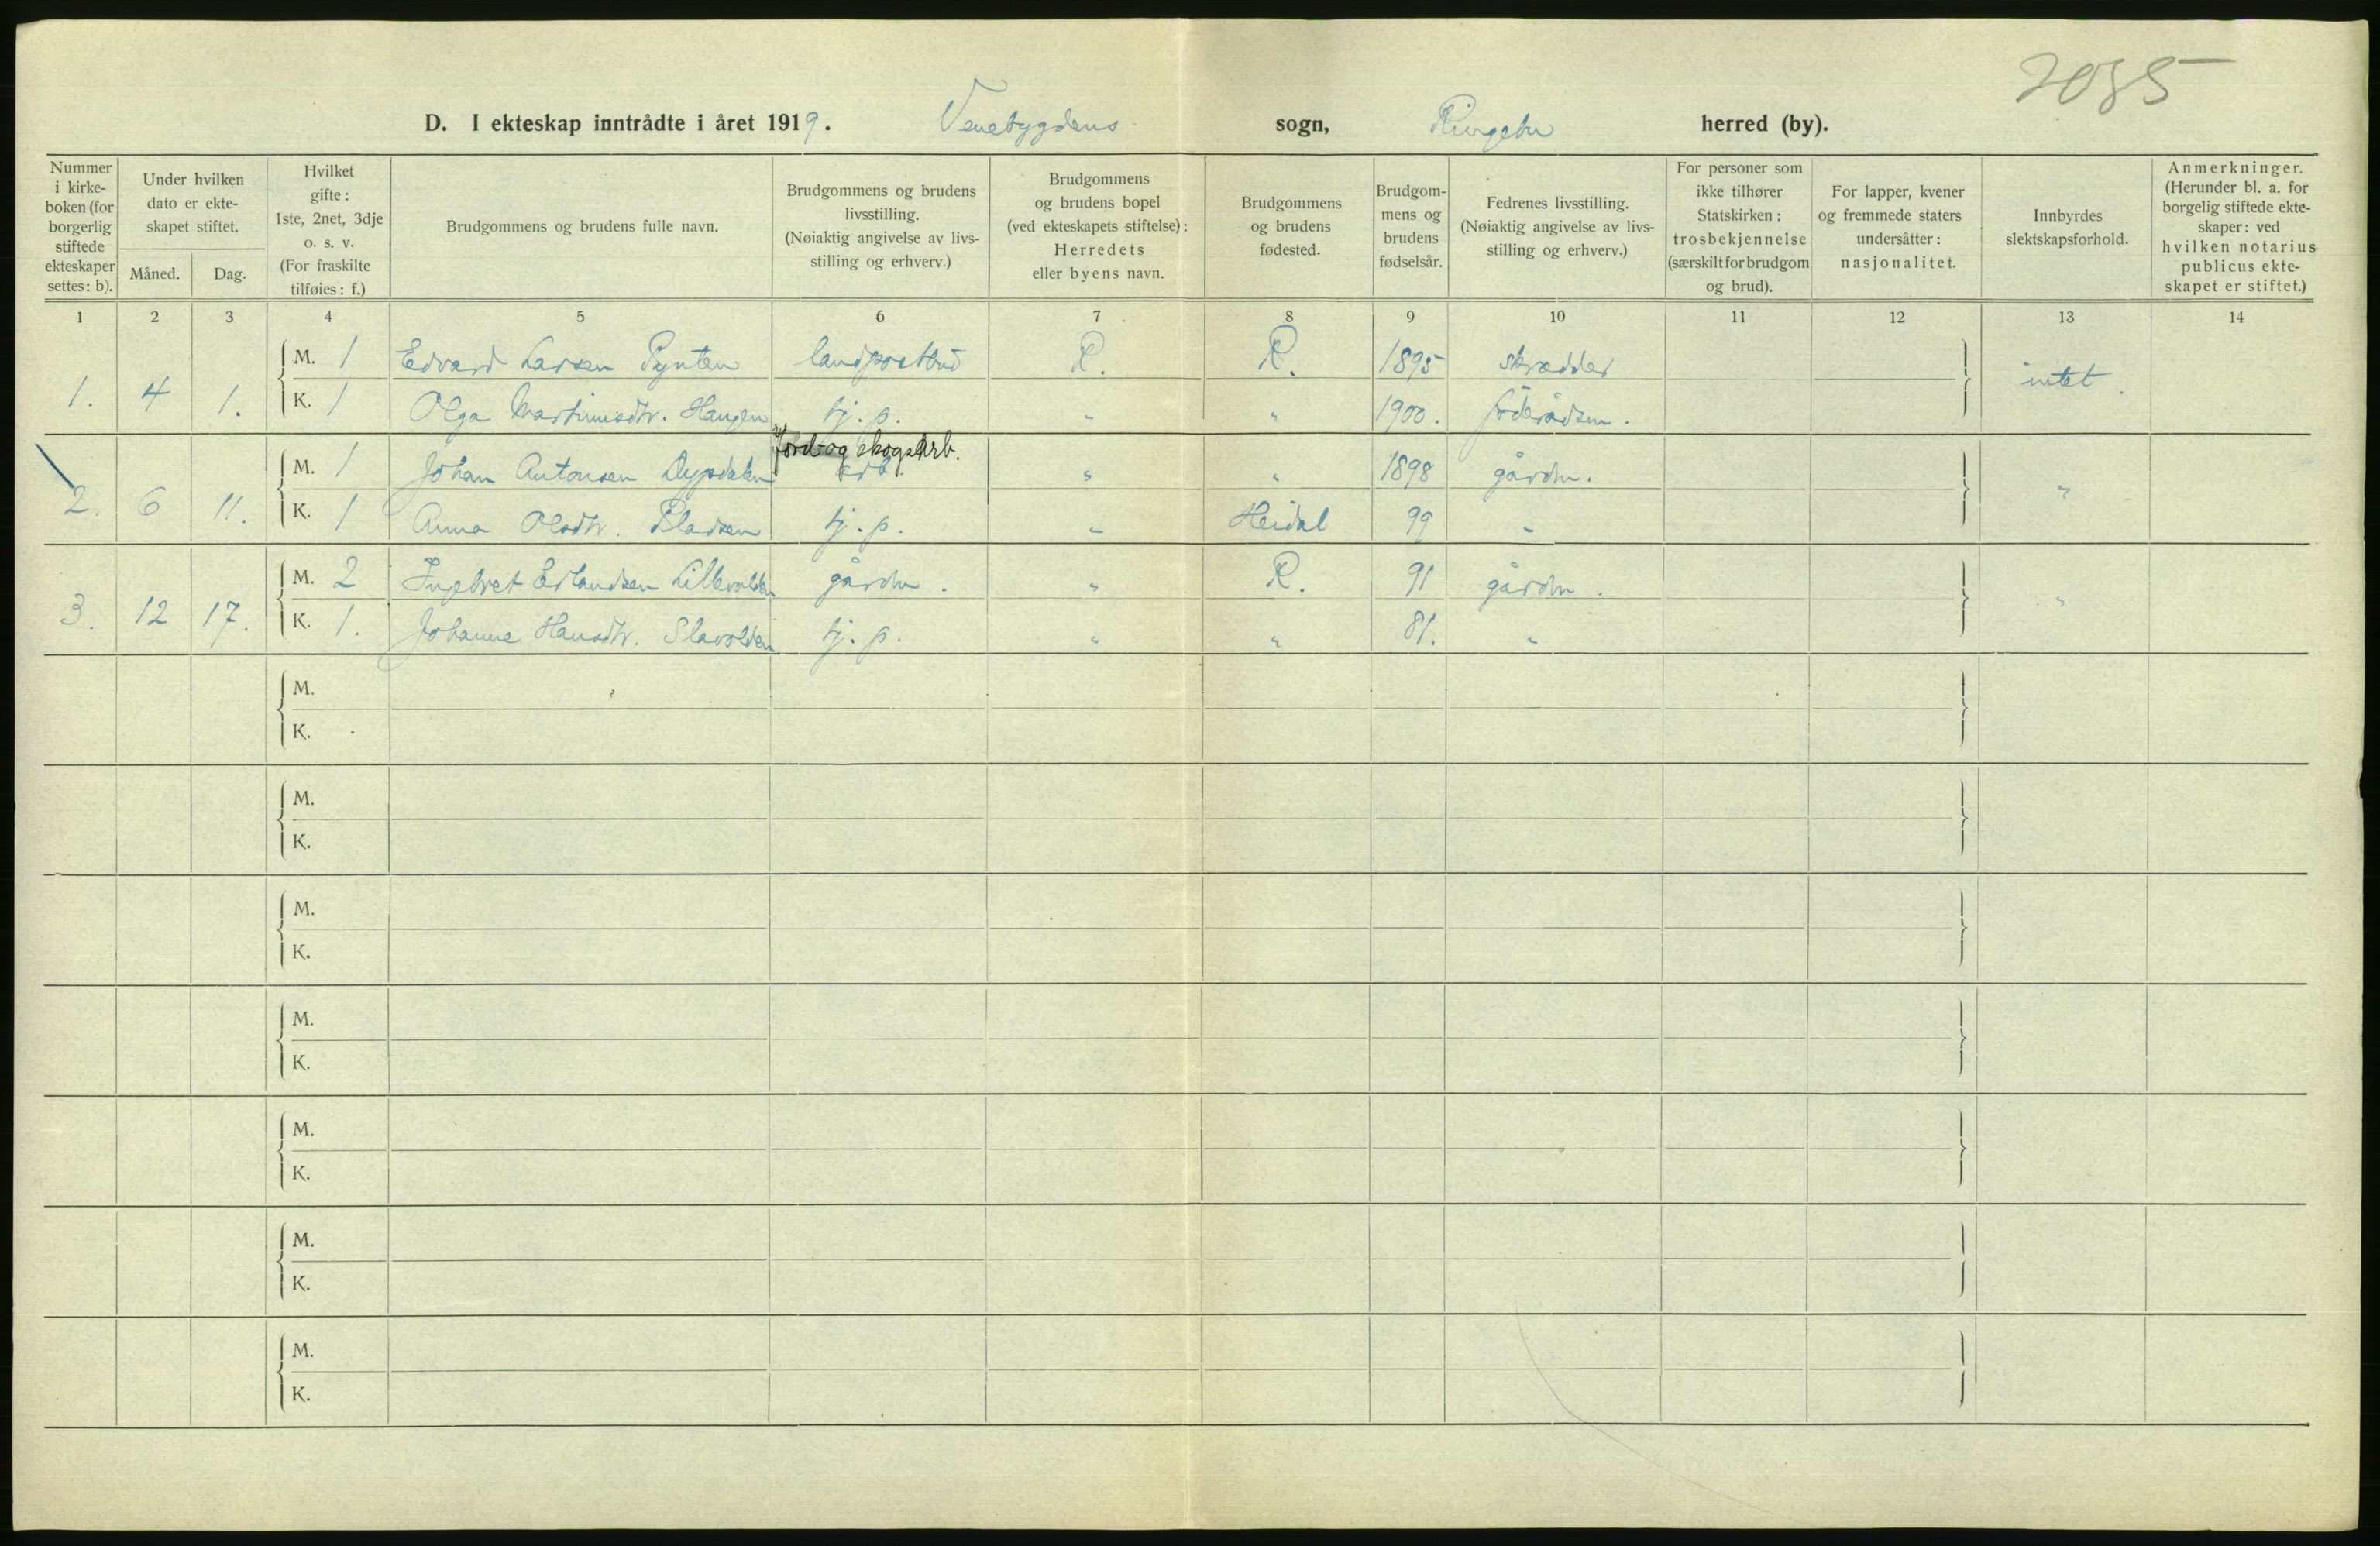 2085
D. I ekteskap inntrådte i året 1919. Venebygdens sogn, Ringebu herred (by).
Nummer i kirkeboken (for borgerlig stiftede ekteskaper settes: b).
Under hvilken dato er ekteskapet stiftet.
Måned.
Dag.
Hvilket gifte: 1ste, 2net, 3dje o. s. v. (For fraskilte tilføies: f.)
Brudgommens og brudens fulle navn.
Brudgommens og brudens livsstilling. (Nøiaktig angivelse av livsstilling og erhverv.)
Brudgommens og brudens bopel (ved ekteskapets stiftelse): Herredets eller byens navn.
Brudgommens og brudens fødested.
Brudgommens og brudens fødselsår.
Fedrenes livsstilling. (Nøiaktig angivelse av livsstilling og erhverv.)
For personer som ikke tilhører Statskirken: trosbekjennelse (særskilt for brudgom og brud).
For lapper, kvener og fremmede staters undersåtter: nasjonalitet.
Innbyrdes slektskapsforhold.
Anmerkninger. (Herunder bl. a. for borgelig stiftede ekteskaper: ved hvilken notarius publicus ekteskapet er stiftet.)
1 2 3 4 5 6 7 8 9 10 11 12 13 14
M. 1 Edvard Larsen Pynten landpostbud R. R. 1895 skrædder
1. 4 1. intet.
K. 1 Olga Martinusdtr. Haugen tj. p. " " 1900. föderådsm.
jord- og skogsarb.
M. 1 Johan Antonsen Dypdalen arb. " " 1898 gårdbr.
2. 6 11. "
K. 1 Anna Olsdtr. Pladsen tj. p. " Heidal 99 "
M. 2 Ingebret Erlandsen Lillevolden gårdbr. " R. 91 gårdbr.
3. 12 17. "
K. 1. Johanne Hansdtr. Slavolden tj. p. " " 81. "
M.
K.
M.
K.
M.
K.
M.
K.
M.
K.
M.
K.
M.
K.